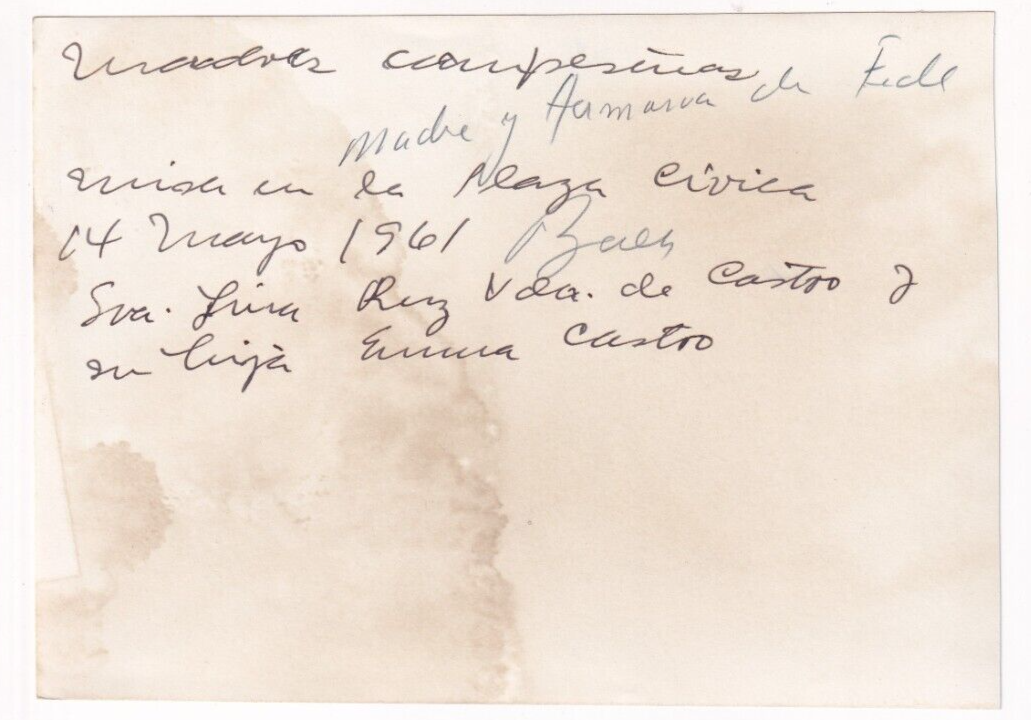 Madres campesinas
Madre y Hermana de Fidel
misa en la Plaza Cívica
14 Mayo 1961
Sra. Lina Ruz Vda. de Castro y
su hija Emma Castro